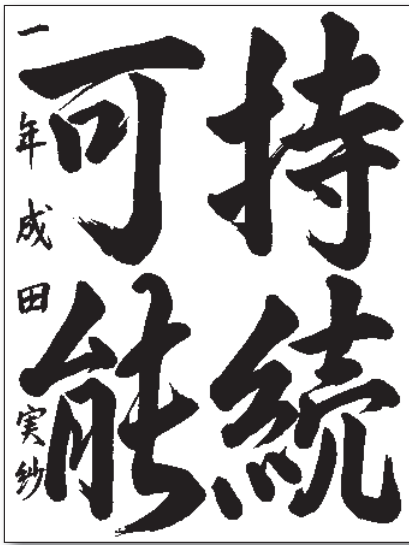 持続
可能
一年成田実紗